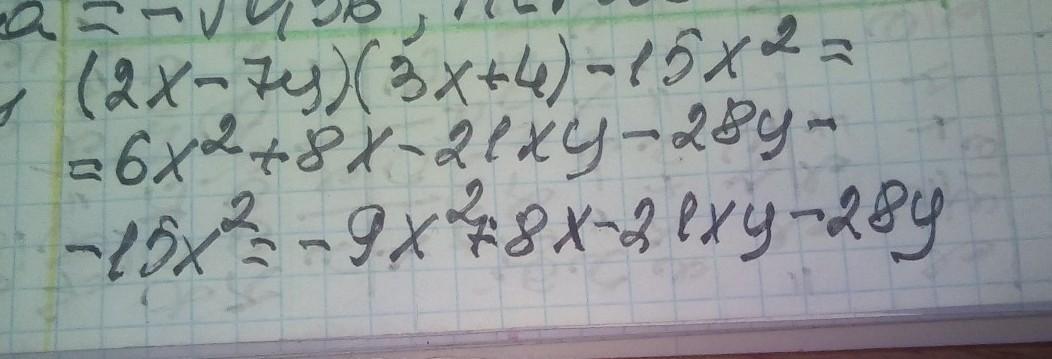 (2x-7y)(3x+4)-15x²=
=6x²+8x-21xy-28y-
-15x²=-9x²+8x-21xy-28y